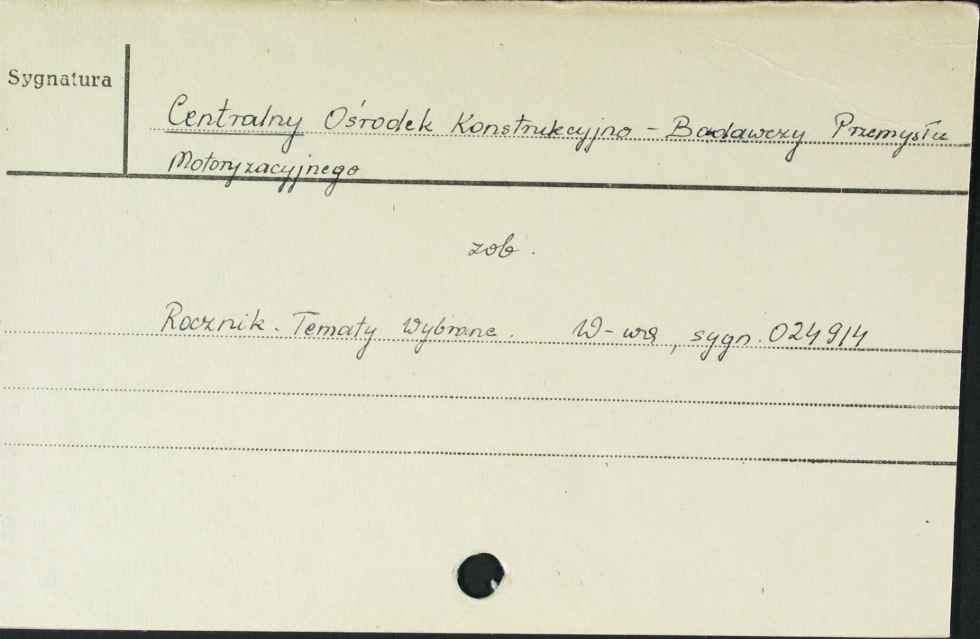 Sygnatura
Centralny Ośrodek Konstrukcyjno - Badawczy Przemysłu
Motoryzacyjnego
zob.
Rocznik. Tematy Wybrane. W-wa, sygn. 024914